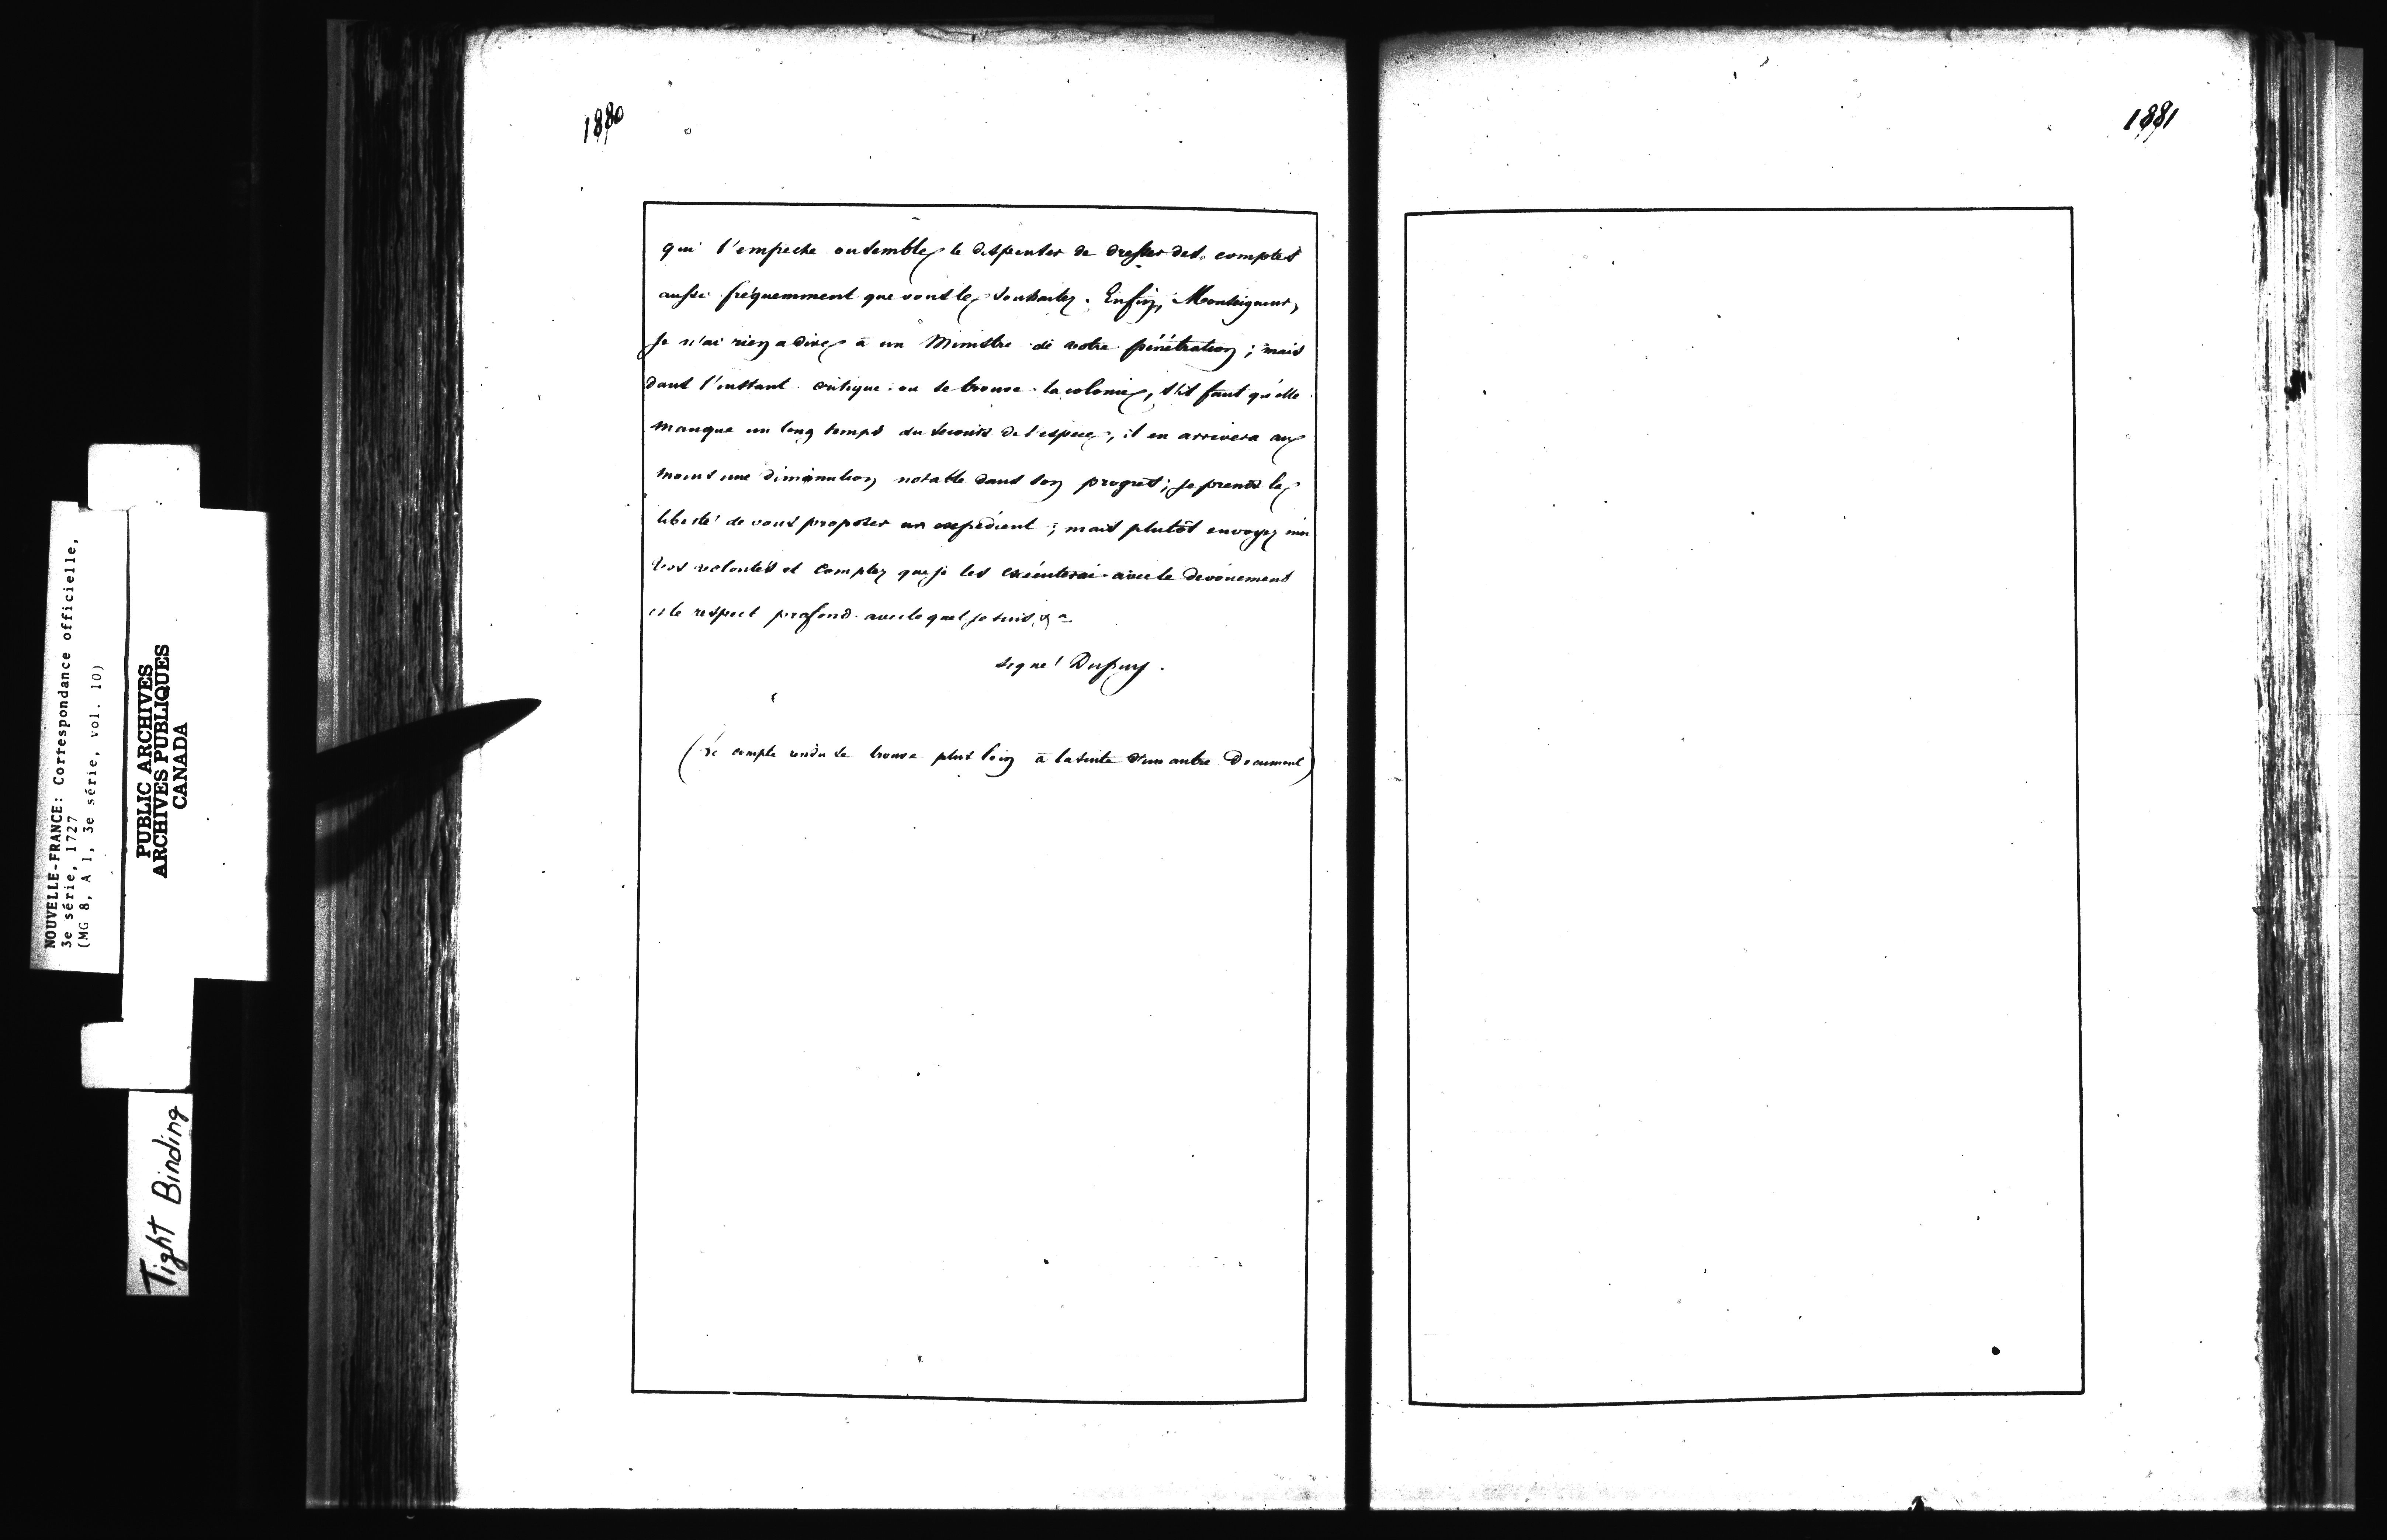 NOUVELLE-FRANCE: Correspondance officielle,
3e série, 1727
(MG 8, A 1, 3e série, vol. 10)
PUBLIC ARCHIVES
ARCHIVES PUBLIQUES
CANADA
Tight Binding
1880
qui l'empeche ou semble le dispenser de dresser des comptes
aussi fréquemment que vous le souhaitez. Enfin, Monseigneur,
je n'ai rien a dire à un Ministre de votre pénétration; mais
dans l'instant critique ou se trouve la colonie, s'il faut qu'elle
manque un long temps du secours de l'espece, il en arrivera au
moins une diminution notable dans son progrès; je prends la
liberté de vous proposer un expédient; mais plutôt envoyez moi
vos volontés et comptez que je les exécuterai avec le devouement
et le respect profond avec lequel je suis &a
signé Dupuy.
(Ce compte rendu se trouve plus loin à la suite d'un autre Document)
1881